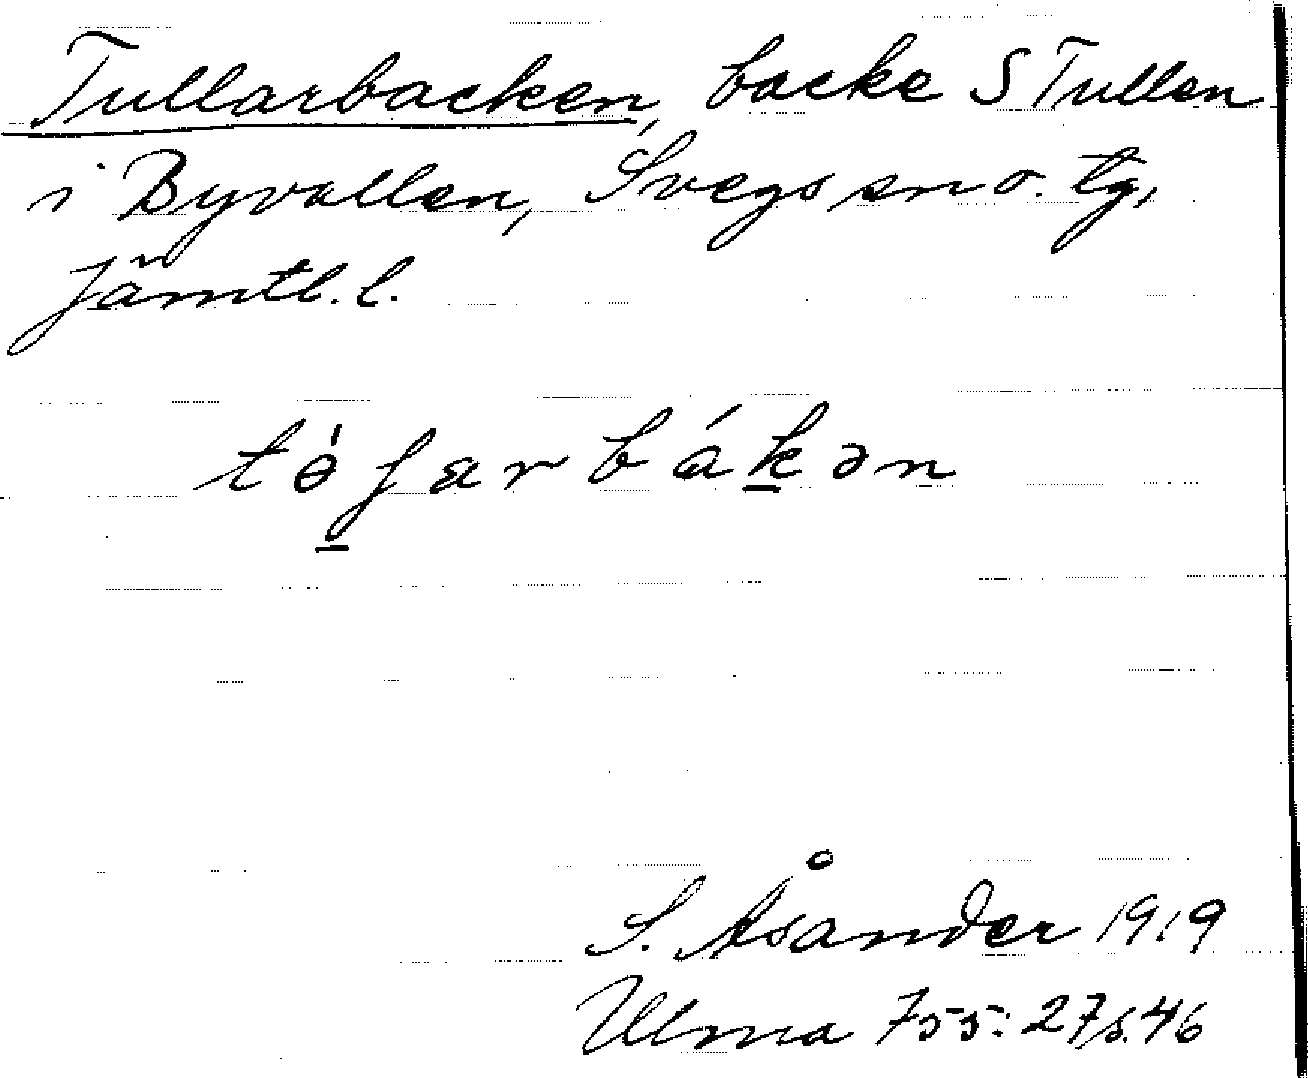 Tullarbacken, backe S Tullen
i Byvallen, Svegs sn o. tg,
Jämtl. l.
tɵ́ʃarbákən
S. Åsander 1919
Ulma 755: 27 s. 46